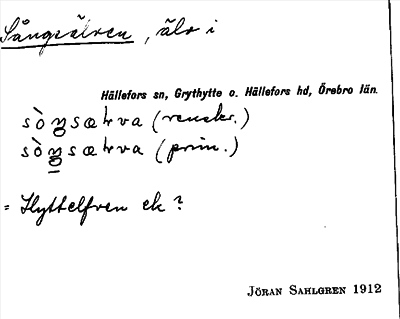 Sångsälven, älv i
Hällefors sn, Grythytte o. Hällefors hd, Örebro län.
sòŋsælva (renskr.)
sòŋsælva (prim.)
= Hyttelfven ek?
JÖRAN SAHLGREN 1912